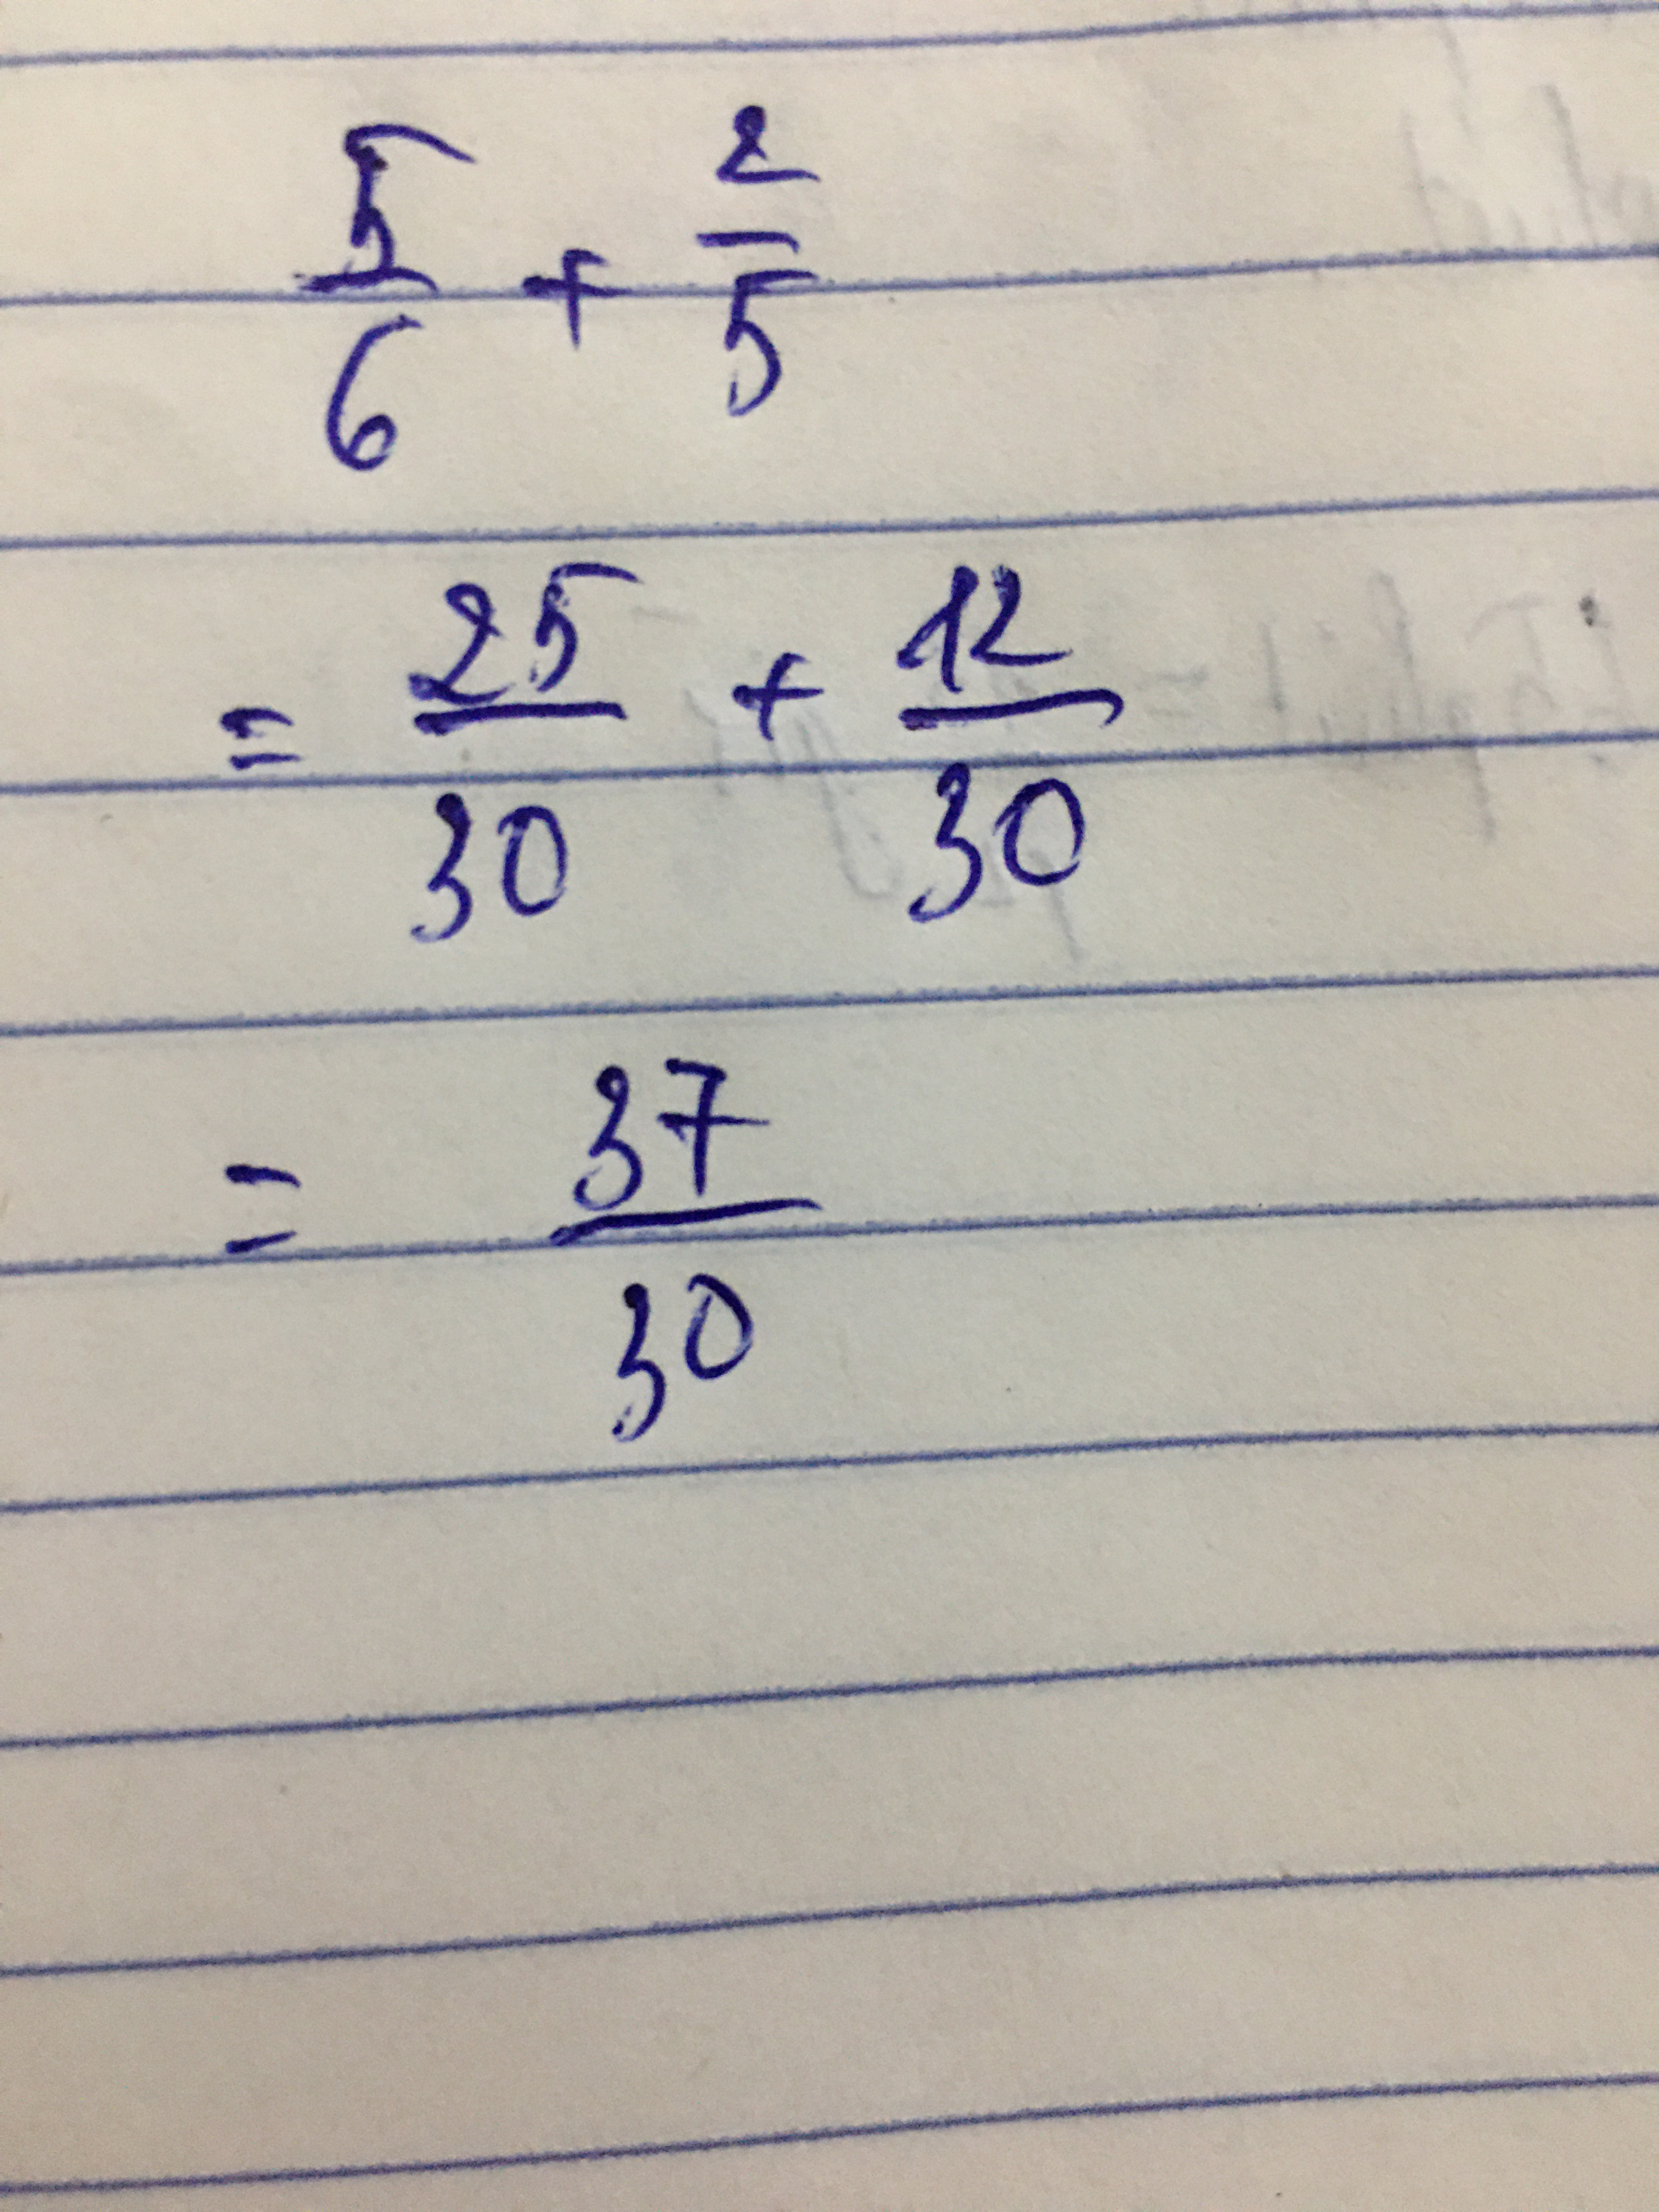 5/6 + 2/5
= 25/30 + 12/30
= 37/30